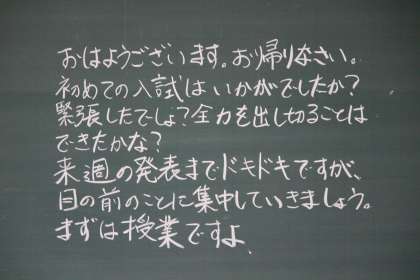 おはようございます。お帰りなさい。
初めての入試はいかがでしたか？
緊張したでしょ？全力を出し切ることは
できたかな？
来週の発表までドキドキですが、
目の前のことに集中していきましょう。
まずは授業ですよ、